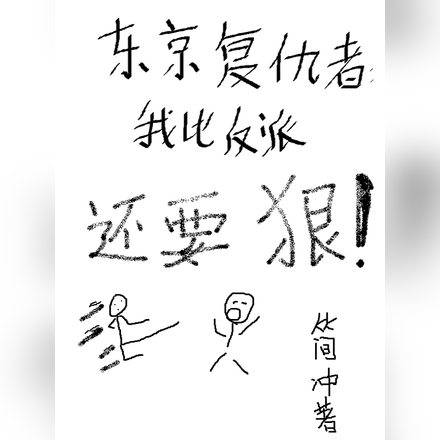 东京复仇者:
我比反派
还要狠!
从间冲著